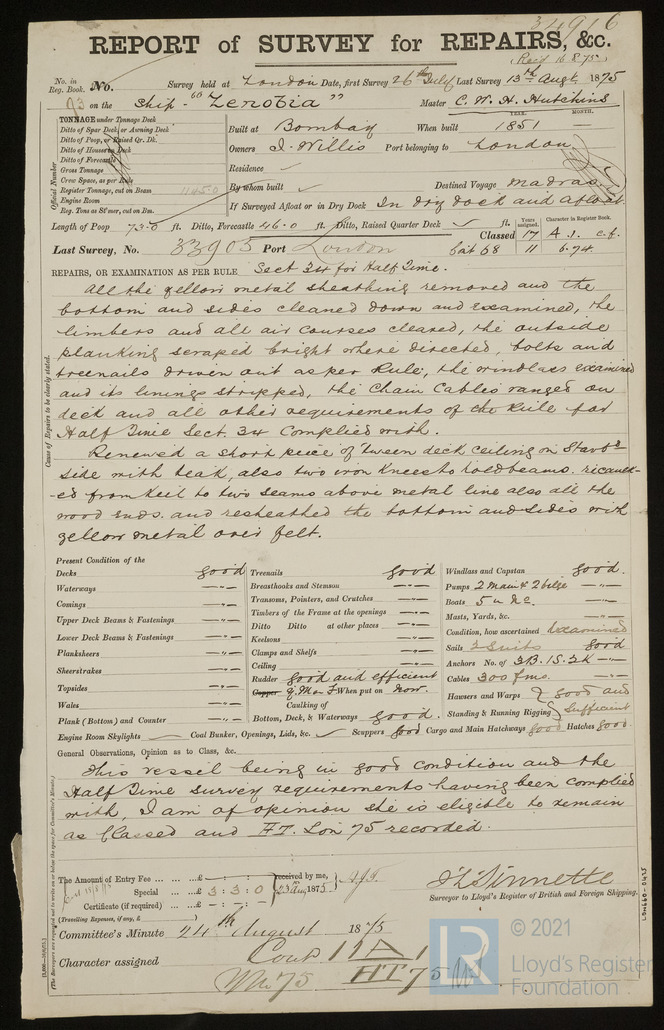 34916
REPORT of SURVEY for REPAIRS, &c.
Rec'd 16.8.75
No. in Reg. Book. No. Survey held at London Date, first Survey 26th July Last Survey 13th Augt 1875
93 on the Ship "Zenobia" Master C. W. H. Hutchins
TONNAGE under Tonnage Deck
Ditto of Spar Deck or Awning Deck
Ditto of Poop, or Raised Qr. Dk.
Ditto of House on Deck
Ditto of Forecastle
Gross Tonnage
Crew Space, as per Rule
Register Tonnage, cut on Beam 1145.0
Engine Room
Reg. Tons as St'mer, cut on Bm.
Official Number
Built at Bombay When built 1851
YEAR. MONTH.
Owners J. Willis Port belonging to London
Residence
By whom built Destined Voyage Madras
If Surveyed Afloat or in Dry Dock In dry dock and afloat
Length of Poop 73.0 ft. Ditto, Forecastle 46.0 ft. Ditto, Raised Quarter Deck ft.
Years assigned. Character in Register Book.
Classed 17 A 1. c.f.
Last Survey, No. 33905 Port London Cont 68 11 6.74
REPAIRS, OR EXAMINATION AS PER RULE Sect 34 for Half Time.
All the yellow metal sheathing removed and the
bottom and sides cleaned down and examined, the
limbers and all air courses cleared, the outside
planking scraped bright where directed, bolts and
treenails driven out as per Rule, the windlass examined
and its linings stripped, the Chain Cables ranged on
deck and all other requirements of the Rule for
Half Time Sect. 34 Complied with.
Renewed a short piece of Tween deck ceiling on Starbd
side with teak, also two iron knees to hold beams. recaulk-
-ed from keil to two seams above metal line also all the
wood ends. and resheathed the bottom and sides with
yellow metal over felt.
Cause of Repairs to be clearly stated.
Present Condition of the
Decks good
Waterways —"—
Comings —"—
Upper Deck Beams & Fastenings —"—
Lower Deck Beams & Fastenings —"—
Planksheers —"—
Sheerstrakes —"—
Topsides —"—
Wales —"—
Plank (Bottom) and Counter —"—
Treenails good
Breasthooks and Stemson —"—
Transoms, Pointers, and Crutches —"—
Timbers of the Frame at the openings —"—
Ditto Ditto at other places —"—
Keelsons —"—
Clamps and Shelfs —"—
Ceiling —"—
Rudder good and efficient
Copper Y.M. on F When put on Now.
Caulking of
Bottom, Deck, & Waterways good.
Windlass and Capstan good.
Pumps 2 Main & 2 bilge —"—
Boats 5 in No. —"—
Masts, Yards, &c. —"—
Condition, how ascertained Examined
Sails 2 Suits good
Anchors No. of 3B. 1S. 2K —"—
Cables 300 fms. —"—
Hawsers and Warps good and
Standing & Running Rigging Sufficient
Engine Room Skylights Coal Bunker, Openings, Lids, &c. Scuppers good Cargo and Main Hatchways good Hatches good
General Observations, Opinion as to Class, &c.
This vessel being in good condition and the
Half Time survey requirements having been complied
with, I am of opinion she is eligible to remain
as Classed and HT. Lon 75 recorded.
The Amount of Entry Fee ... ... £ : : received by me,
Special ... £ 3 : 3 : 0 23 Aug 1875
Certificate (if required) ... £ - : - : -
(Travelling Expenses, if any, £ )
Surveyor to Lloyd's Register of British and Foreign Shipping.
Committee's Minute 24th August 1875
Character assigned Cont 11 A 1
HT 75
LON660-0435
© 2021
LR
Lloyd's Register
Foundation